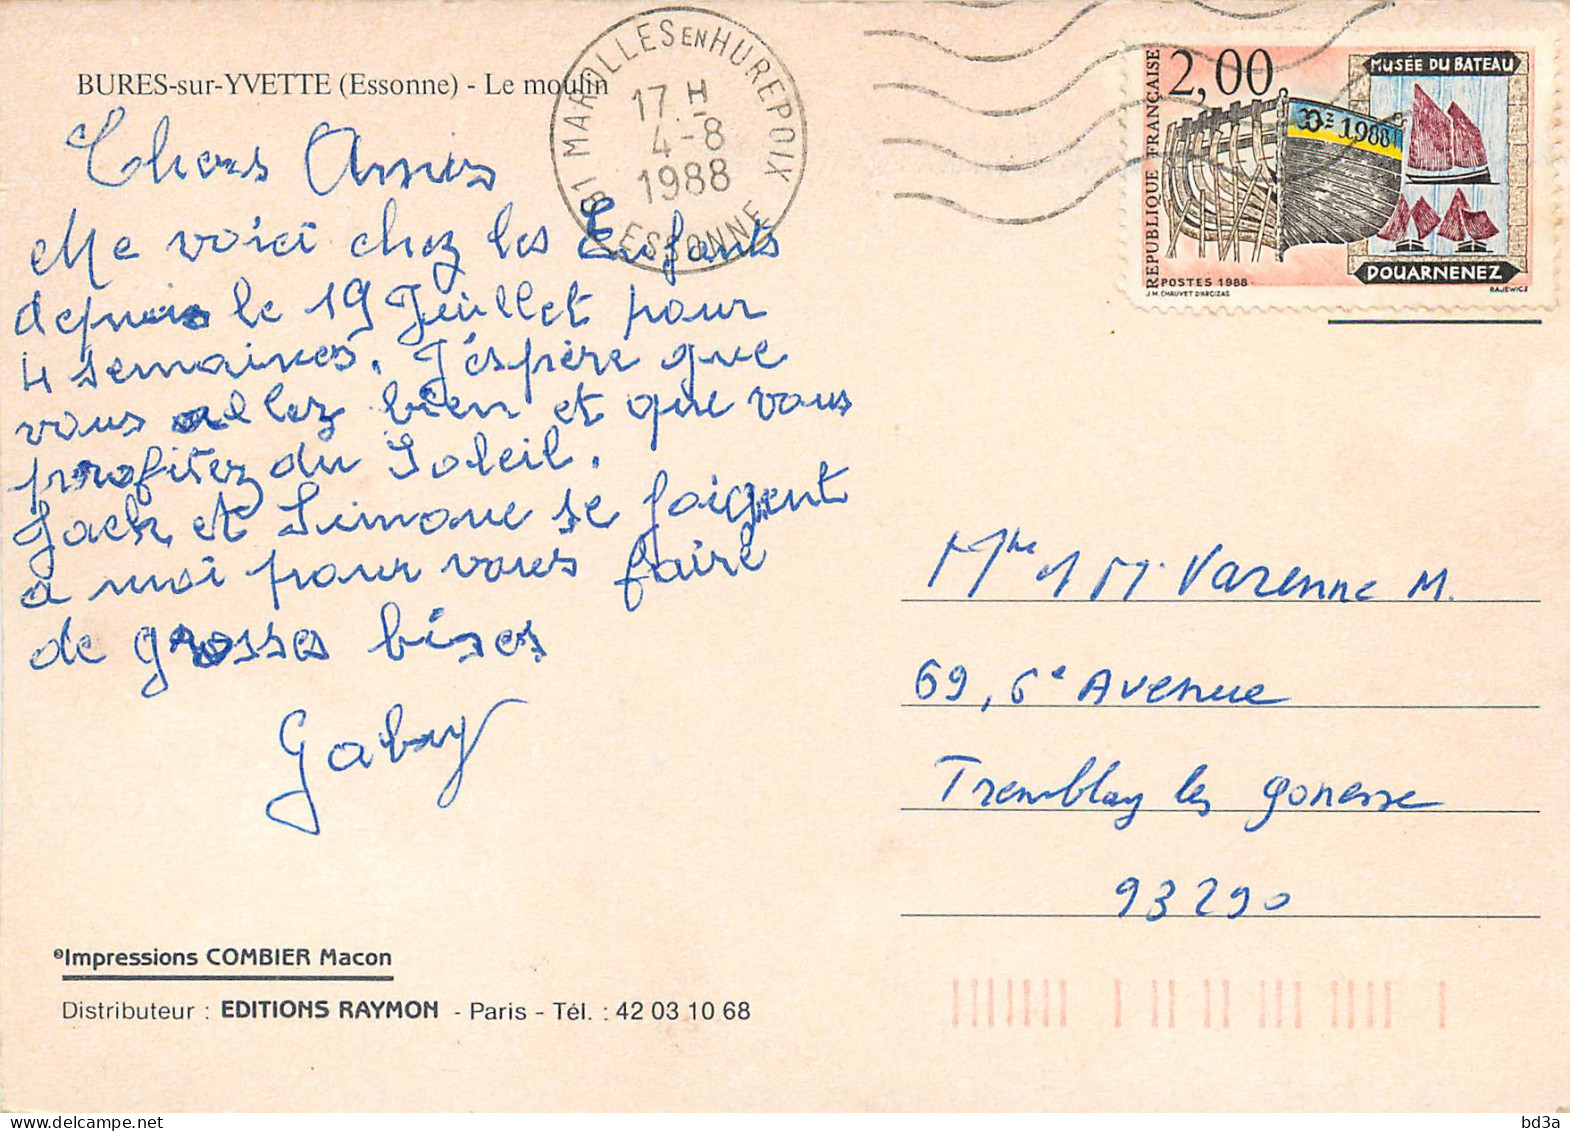 BURES-sur-YVETTE (Essonne) - Le moulin
Chers Amis
Me voici chez les Enfants
depuis le 19 Juillet pour
4 semaines. J'espère que
vous allez bien et que vous
profitez du Soleil.
Jack et Simone se joignent
a moi pour vous faire
de grosses bises
Gaby
Impressions COMBIER Macon
Distributeur : EDITIONS RAYMON - Paris - Tél. : 42 03 10 68
91 MAROLLES EN HUREPOIX
17 H
4-8
1988
ESSONNE
REPUBLIQUE FRANÇAISE
2,00
MUSÉE DU BATEAU
DZ 1988
DOUARNENEZ
POSTES 1988
J.M. CHAUVET D'ARCIZAS
RAJEWICZ
Mme et M. Varenne M.
69, 6e Avenue
Tremblay les gonesse
93290
bd3a